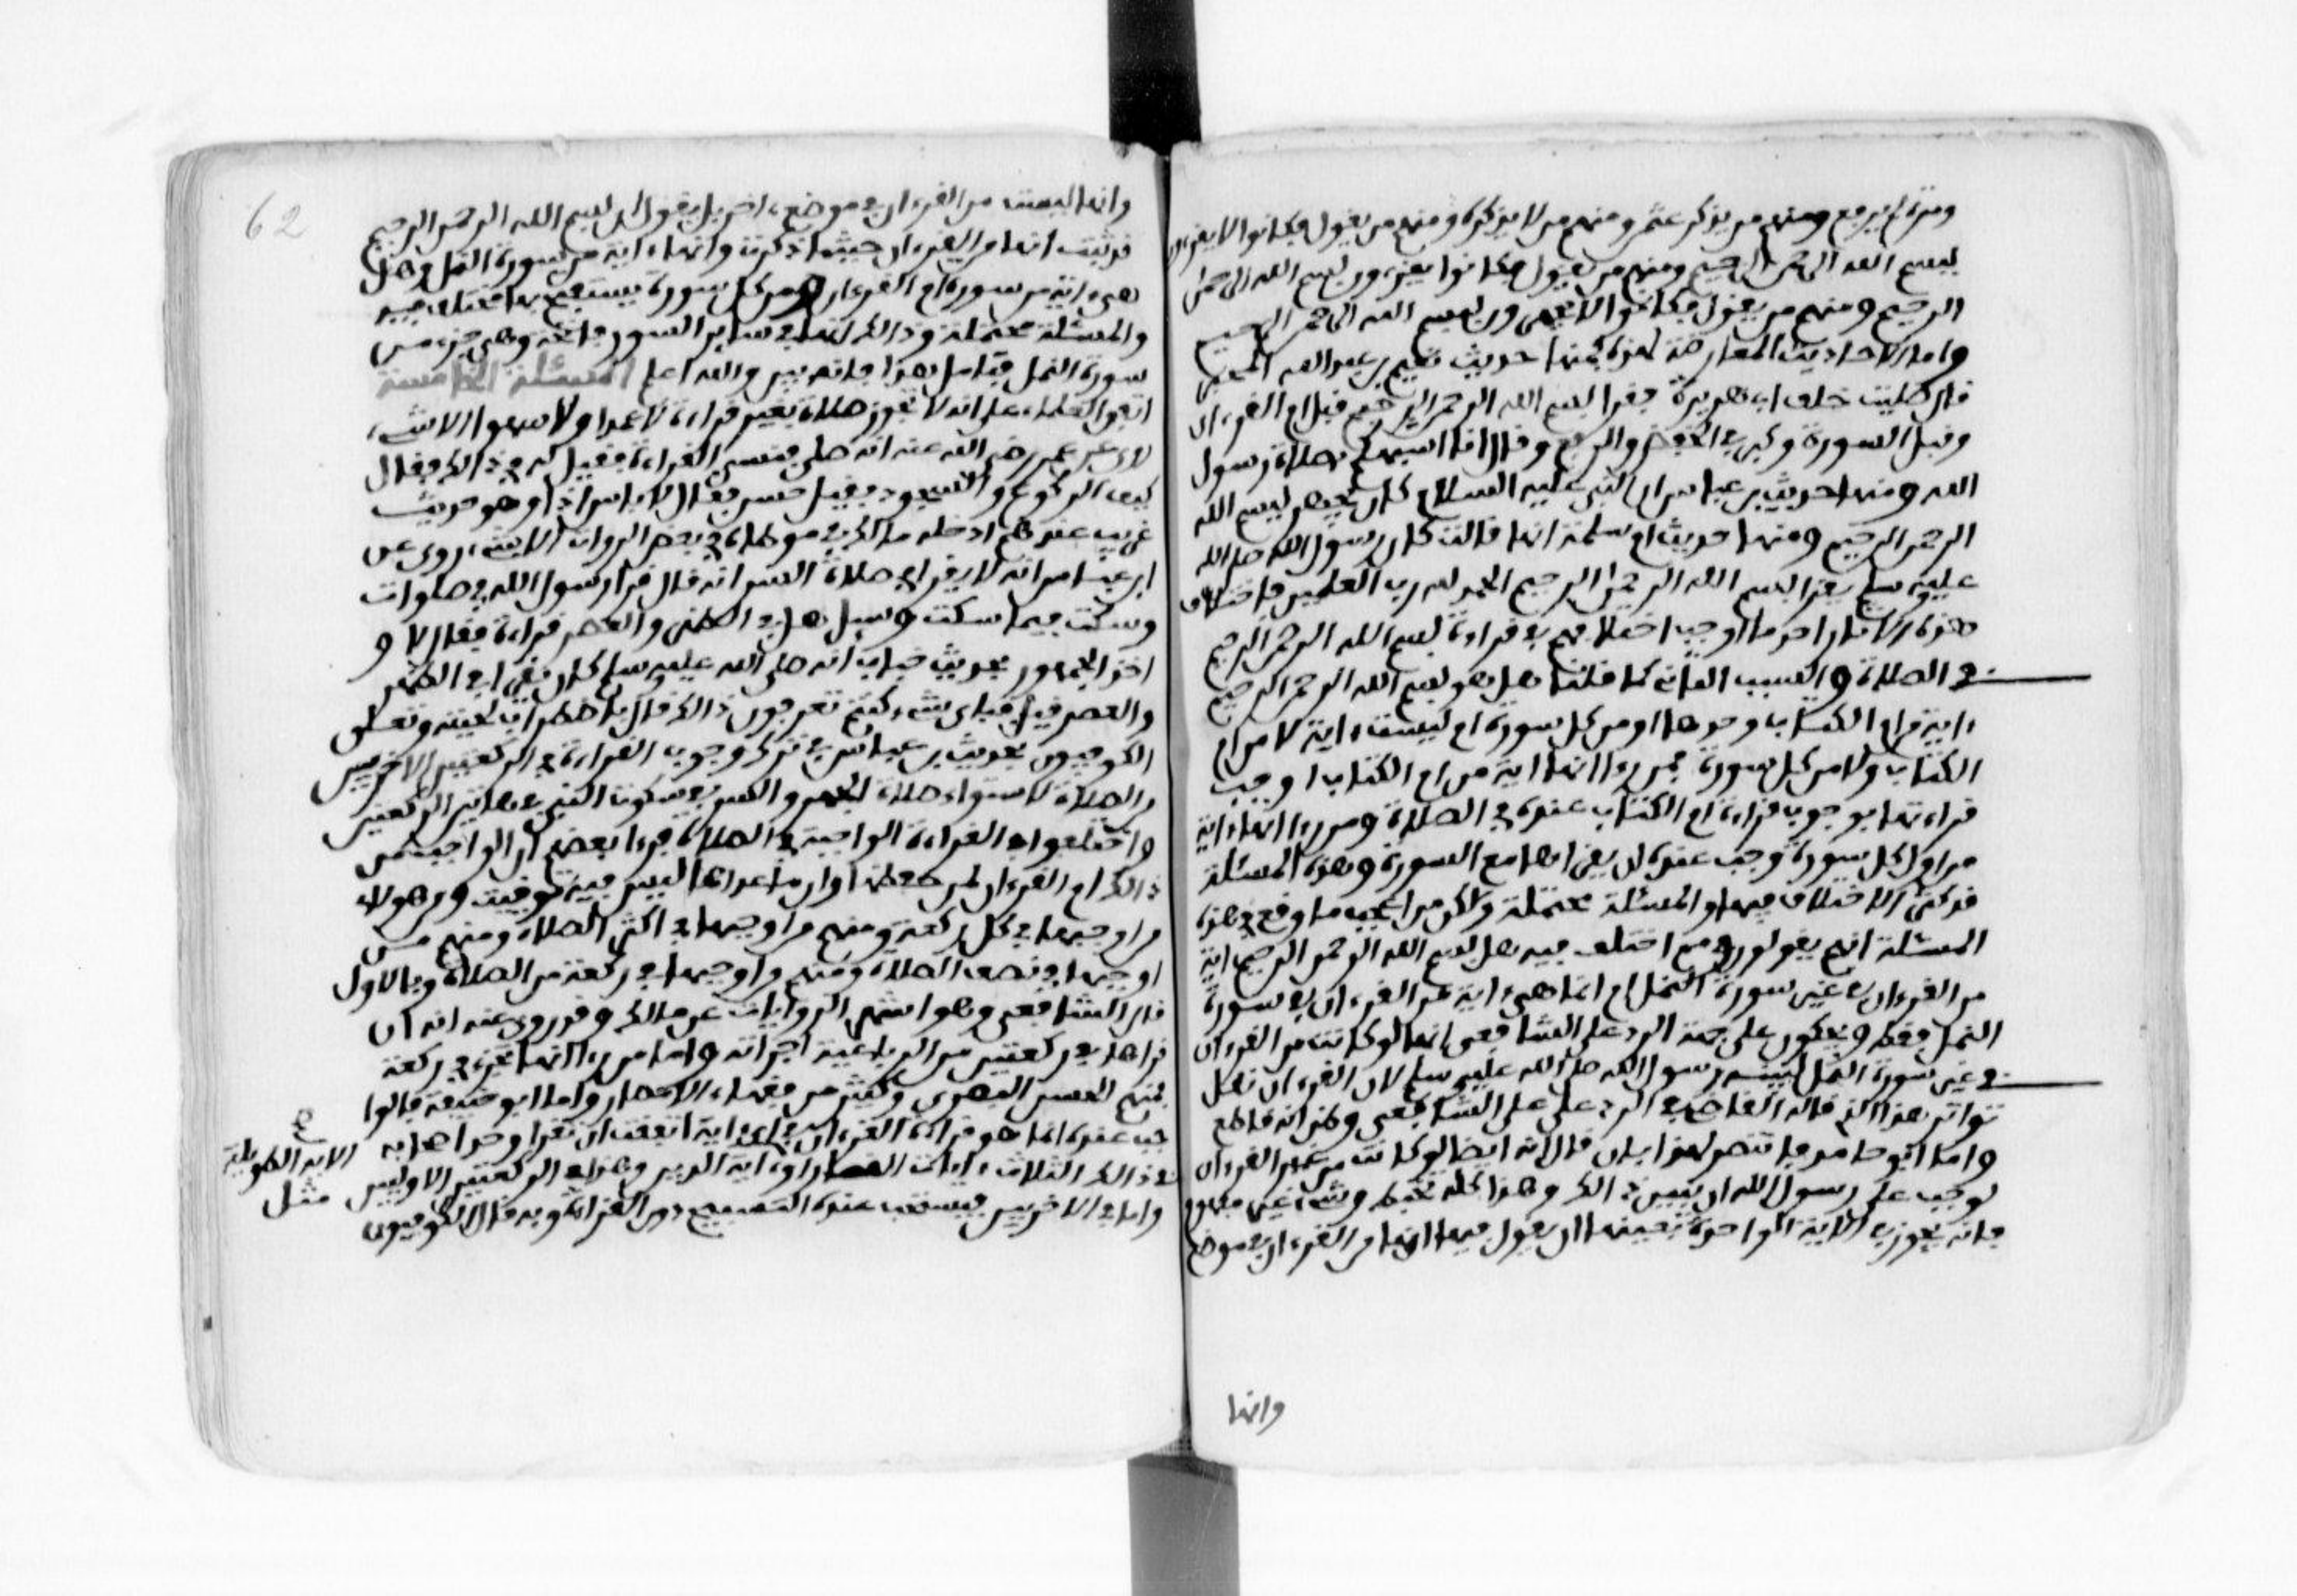 ومرة لم يرفع ومنهم من يذكر عثمن ومنهم من لا يذكره ومنهم من يقول فكانوا لا يقرءون
بسم الله الرحمن الرحيم ومنهم من يقول فكانوا يقرءون بسم الله الرحمن
الرحيم ومنهم من يقول فكانوا لا يجهرون بسم الله الرحمن الرحيم
واما الاحاديث المعارضة لهذه فمنها حديث نعيم بن عبد الله المجمر
قال صليت خلف ابي هريرة فقرا بسم الله الرحمن الرحيم قبل ام القرءان
وقبل السورة وكبر في الخفض والرفع وقال انا اشبهكم بصلاة رسول
الله ومنها حديث بن عباس ان النبي عليه السلام كان يجهر بسم الله
الرحمن الرحيم ومنها حديث ام سلمة انها قالت كان رسول الله صلى الله
عليه وسلم يقرا بسم الله الرحمن الرحيم الحمد لله رب العلمين فاختلاف
هذه الاثار احد ما اوجب اختلافهم في قراءة بسم الله الرحمن الرحيم
في الصلاة والسبب الثاني كما قلنا هل هو بسم الله الرحمن الرحيم
ءاية من ام الكتاب وحدها او من كل سورة ام ليست ءاية لا من ام
الكتاب ولا من كل سورة فمن رءا انها اية من ام الكتاب اوجب
قراءتها بوجوب قراءة ام الكتاب عنده في الصلاة ومن رءا انها ءاية
من اول كل سورة وجب عنده ان يقراها مع السورة وهذه المسئلة
قد كثر الاختلاف فيها والمسئلة محتملة ولكن من اعجب ما وقع في هذه
المسئلة انهم يقولون مم اختلف فيه هل بسم الله الرحمن الرحيم اية
من القرءان في غير سورة النمل ام انما هي ءاية من القرءان في سورة
النمل فقط ويحكون على جهة الرد على الشافعي انها لو كانت من القرءان
في غير سورة النمل لبينه رسول الله صلى الله عليه وسلم لان القرءان نقل
تواتر هذا الذي قاله القاضي في الرد على الشافعي وظن انه قاطع
واما ابو حامد فانتصر لهذا بان قال لانه ايضا لو كانت من غير القرءان
لوجب على رسول الله ان يبين ذالك وهذا كله تخبط وشيء غير مفهوم
فانه يجوز في الاية الواحدة بعينها ان يقول فيها انها من القرءان في موضع
وانها
62
وانها ليست من القرءان في موضع ءاخر بل يقول ان بسم الله الرحمن الرحيم
قد ثبت انها من القرءان حيثما ذكرت وانها ءاية من سورة النمل وهل
هي ءاية من سورة ام القرءان ومن كل سورة يستفتح بها مختلف فيه
والمسئلة محتملة وذالك انها في سائر السور فاتحة وهي جزء من
سورة النمل فتامل هذا فانه بين والله اعلم المسئلة الخامسة
اتفق العلماء على انه لا تجوز صلاة بغير قراءة لا عمدا ولا سهوا الا شيء
روي عن عمر رضي الله عنه انه صلى فنسي القراءة فقيل له في ذالك فقال
كيف الركوع والسجود فقيل حسن فقال لا باس اذا وهو حديث
غريب عندهم ادخله مالك في موطاه في بعض الروات الا شيء روي عن
ابن عباس انه لا يقرا في صلاة السر انه قال قرا رسول الله في صلوات
وسكت فيما سكت وسيل هل في الظهر والعصر قراءة فقال لا و
اخذ الجمهور بحديث خباب انه صلى الله عليه وسلم كان يقرا في الظهر
والعصر قيل فباي شيء كنتم تعرفون ذالك قال باضطراب لحيته وتعلق
الكوفيون بحديث بن عباس في ترك وجوب القراءة في الركعتين الاخيرتين
من الصلاة لاستواء صلاة الجهر والسر في سكوت النبي في هاتين الركعتين
واختلفوا في القراءة الواجبة في الصلاة فرءا بعضهم ان الواجب من
ذالك ام القرءان لمن حفظها وان ما عداها ليس فيه توقيت ومن هولاء
من اوجبها في كل ركعة ومنهم من اوجبها في اكثر الصلاة ومنهم من
اوجبها في نصف الصلاة ومنهم من اوجبها في ركعة من الصلاة وبالاول
قال الشافعي وهو اشهر الروايات عن مالك وقد روي عنه انه ان
قراها في ركعتين من الرباعية اجزاته واما من رءا انها تجزي في ركعة
فمنهم الحسن البصري وكثير من فقهاء الامصار واما ابو حنيفة فالواجب
عنده انما هو قراءة القرءان اي ءاية اتفقت ان تقرا وحد اصحابه
في ذالك الثلاث ءايات القصار او ءاية الدين وهذا في الركعتين الاوليين
الاية الطويلة
مثل
واما في الاخريين فيستحب عنده التسبيح دون القراءة وبه قال الكوفيون